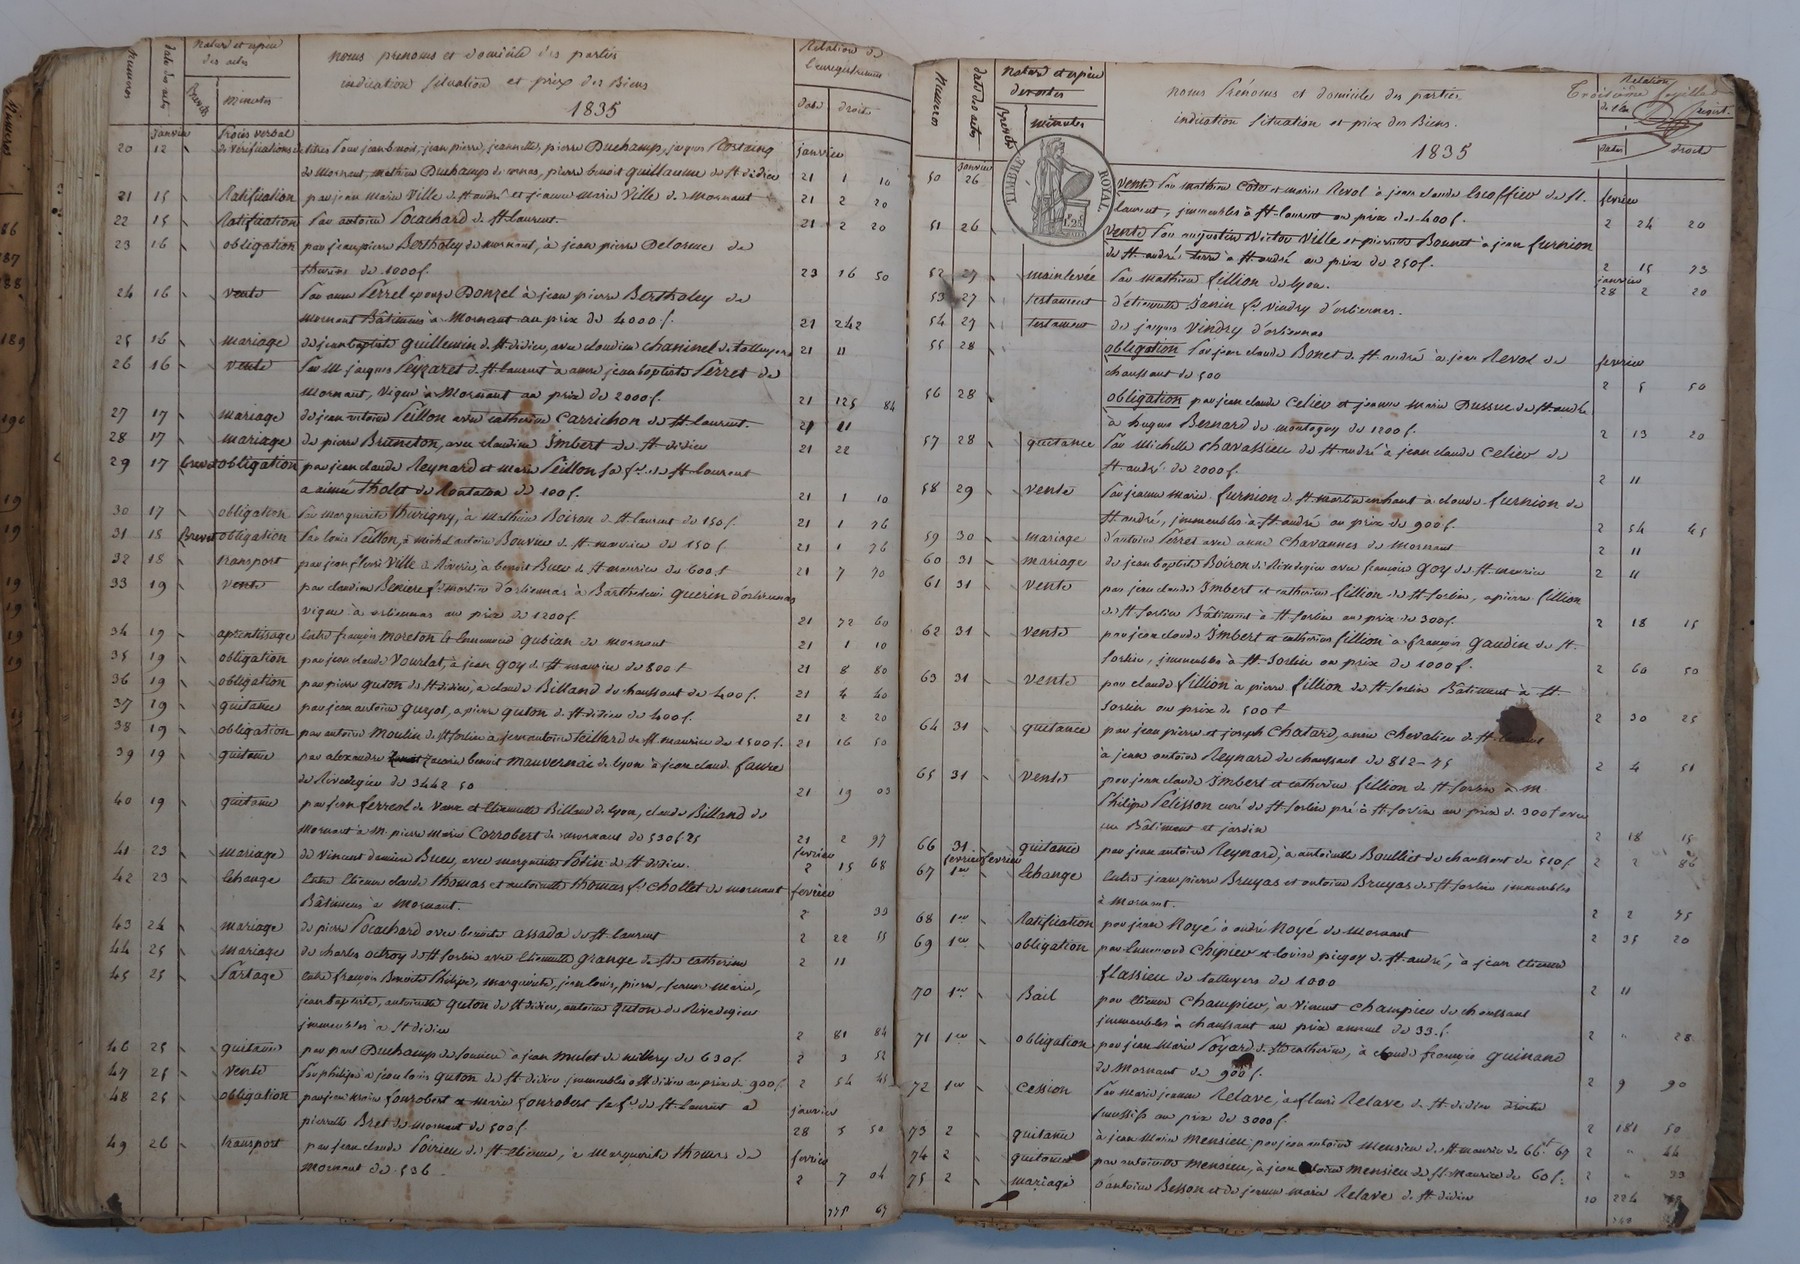 Numéros
date des actes
nature et espèce des actes
Brevets
minutes
noms prenoms et domicile des parties
indication situation et prix des Biens
1835
Relation de l'enregistrement
date
droit
janvier Procès verbal
20 12 de vérifications de titres par jean benoit, jean pierre, jeannette, pierre Duchamp, jacques Rostaing janvier
de Mornant, mathieu Duchamp de mornas, pierre benoit guillaume de st didier 21 1 10
21 15 Ratification par jean marie Ville de st andré et jeanne marie Ville de Mornant 21 2 20
22 15 Ratification par antoine Pocachard de st laurent 21 2 20
23 16 obligation par jean pierre Bertholey de mornant, à jean pierre Delorme de
thurins de 1000f. 23 16 50
24 16 vente par anne Perrel epouse Donzel à jean pierre Bertholey de
Mornant Bâtiments à Mornant au prix de 4000f. 21 242
25 16 mariage de jean baptiste guillermin de st didier, avec claudine chaninel de talluyers 21 11
26 16 vente par M. jacques Peyzaret de st laurent à aimé jean baptiste Perret de
Mornant, vigne à Mornant au prix de 2000f. 21 125 84
27 17 mariage de jean antoine Peillon avec catherine Carrichon de st laurent. 21 11
28 17 mariage de pierre Bruneton, avec claudine Imbert de st didier 21 22
29 17 brevet obligation par jean claude Reynard et marie Peillon sa fe de st laurent
a aimée tholet de Rontalon de 100f. 21 1 10
30 17 obligation par marguerite thurigny, à mathieu Boiron de st laurent de 150f. 21 1 76
31 18 Brevet obligation par louis Peillon, à michel antoine Bouvier de st maurice de 150f 21 1 76
32 18 transport par jean fleuri Ville de Riverie, à benoit Bueu de st maurice de 600f 21 7 70
33 19 vente par claudine Reniere fe martin d'orliennas à Barthelemi guerin d'orliennas
vigne à orliennas au prix de 1200f. 21 72 60
34 19 aprentisage entre françois moreton et ennemond gubian de mornant 21 1 10
35 19 obligation par jean claude Vourlat, à jean goy de st maurice de 800f 21 8 80
36 19 obligation par pierre guton de st didier, à claude Billand de chaussant de 400f. 21 4 40
37 19 quitance par jean antoine guyot, a pierre guton de st didier de 400f. 21 2 20
38 19 obligation par antoine moulin de st sorlin à jean antoine Peillard de st maurice de 1500f. 21 16 50
39 19 quitance par alexandre xavier benoit mauvernac de lyon à jean claude faure
de Rivedegier de 3442 50 21 19 03
40 19 quitance par jean ferreol de Vaux et Etiennette Billand de lyon, claude Billand de
Mornant à M. pierre marie Corrobert de mornant de 530f.25 21 2 97
41 23 mariage de vincent damien Bueu, avec marguerite Potin de st didier. fevrier 2 15 68
42 23 Echange entre Etienne claude thomas et antoinette thomas fe chollet de mornant fevrier
Bâtiments à Mornant. 2 33
43 24 mariage de pierre Pocachard avec benoite assada de st laurent 2 22 55
44 25 mariage de charles octroy de st sorlin avec Etiennette grange de ste catherine 2 11
45 25 Partage entre françois Benoite Philipe, marguerite, jean louis, pierre, jeanne marie,
jean baptiste, antoinette guton de st didier, antoine guton de Rivedegier
immeubles à st didier 2 81 84
46 25 quitance par paul Duchamp de soucieu à jean mulet de millery de 630f. 2 3 52
47 25 vente par philipe a jean louis guton de st didier immeubles a st didier au prix de 900f. 2 54 45
48 25 obligation par jean marie fourobert et marie fourobert sa fe de st laurent à janvier
pierrette Bret de mornant de 500f. 28 5 50
49 26 transport par jean claude Poirieu de st Etienne, à marguerite thomas de fevrier
Mornant de 536. 2 7 04
775 67
Numéros
date des actes
nature et espèce des actes
Brevets
minutes
noms Prénoms et domicile des parties
indication situation et prix des Biens.
1835
Troisième feuillet
Relation de l'enregist.
dates
droit
TIMBRE ROYAL
1f.25
janvier
50 26 vente par mathieu Côte et marie Revol à jean claude Escoffier de st. fevrier
laurent, immeubles à st laurent au prix de 400f. 2 24 20
51 26 vente par augustin Victor Ville et pierrette Bonnet à jean furnion
de st andré terre à st andré au prix de 250f. 2 15 73
52 27 mainlevée par mathieu fillion de lyon. janvier
53 27 testament d'étiennette Janin fe Vindry d'orliennas. 28 2 20
54 27 testament de jacques Vindry d'orliennas
55 28 obligation par jean claude Bonet de st andré à jean Revol de fevrier
chaussant de 500 2 5 50
56 28 obligation par jean claude Celieu et jeanne marie Dussuc de st andré
à hugues Bernard de montagny de 1200f. 2 13 20
57 28 quitance par Michelle Chavassieu de st andré à jean claude Celieu de
st andré de 2000f. 2 11
58 29 vente par jeanne marie furnion de st martin en haut à claude furnion de
st andré, immeubles à st andré au prix de 900f. 2 54 45
59 30 mariage d'antoine Perret avec anne Chavannes de mornant 2 11
60 31 mariage de jean baptiste Boiron de Rivedegier avec françoise goy de st maurice 2 11
61 31 vente par jean claude Imbert et catherine fillion de st sorlin, a pierre fillion
de st sorlin Bâtiment à st sorlin au prix de 300f. 2 18 15
62 31 vente par jean claude Imbert et catherine fillion à françois gaudin de st.
sorlin, immeubles à st sorlin au prix de 1000f. 2 60 50
63 31 vente par claude fillion à pierre fillion de st sorlin Bâtiment à st
sorlin au prix de 500f 2 30 25
64 31 quitance par jean pierre et joseph Chatard, anne Chevalier de st
à jean antoine Reynard de chaussant de 812-75 2 4 51
65 31 vente par jean claude Imbert et catherine fillion de st sorlin à m
Philipe Pelisson curé de st sorlin pré à st sorlin au prix de 300f avec
un Bâtiment et jardin 2 18 15
66 31 quitance par jean antoine Reynard, à antoinette Boulliet de chaussant de 510f 2 2 86
fevrier fevrier
67 1er Echange entre jean pierre Bruyas et antoine Bruyas de st sorlin immeubles
à Mornant. 2 2 75
68 1er Ratification par jean Noyé à andré Noyé de Mornant
69 1er obligation par Ennemond Chipier et louise picgoy de st andré, à jean Etienne 2 35 20
flassieu de talluyers de 1000
70 1er Bail par Etienne Champier, à Vincent Champier de chaussant 2 11
immeubles à chaussant au prix annuel de 33f.
71 1er obligation par jean marie Poyard de ste catherine, à claude françois guinand 2 " 28
de Mornant de 900f.
72 1er Cession par marie jeanne Relave, à fleuri Relave de st didier droits 2 9 90
successifs au prix de 3000f.
73 2 quitance à jean marie mensieu, par jean antoine mensieu de st maurice de 66f 67 2 181 50
74 2 quitance par antoinette mensieu, à jean antoine mensieu de st maurice de 60f. 2 " 44
75 2 mariage d'antoine Besson et de jeanne marie Relave de st didier 2 " 33
10 224